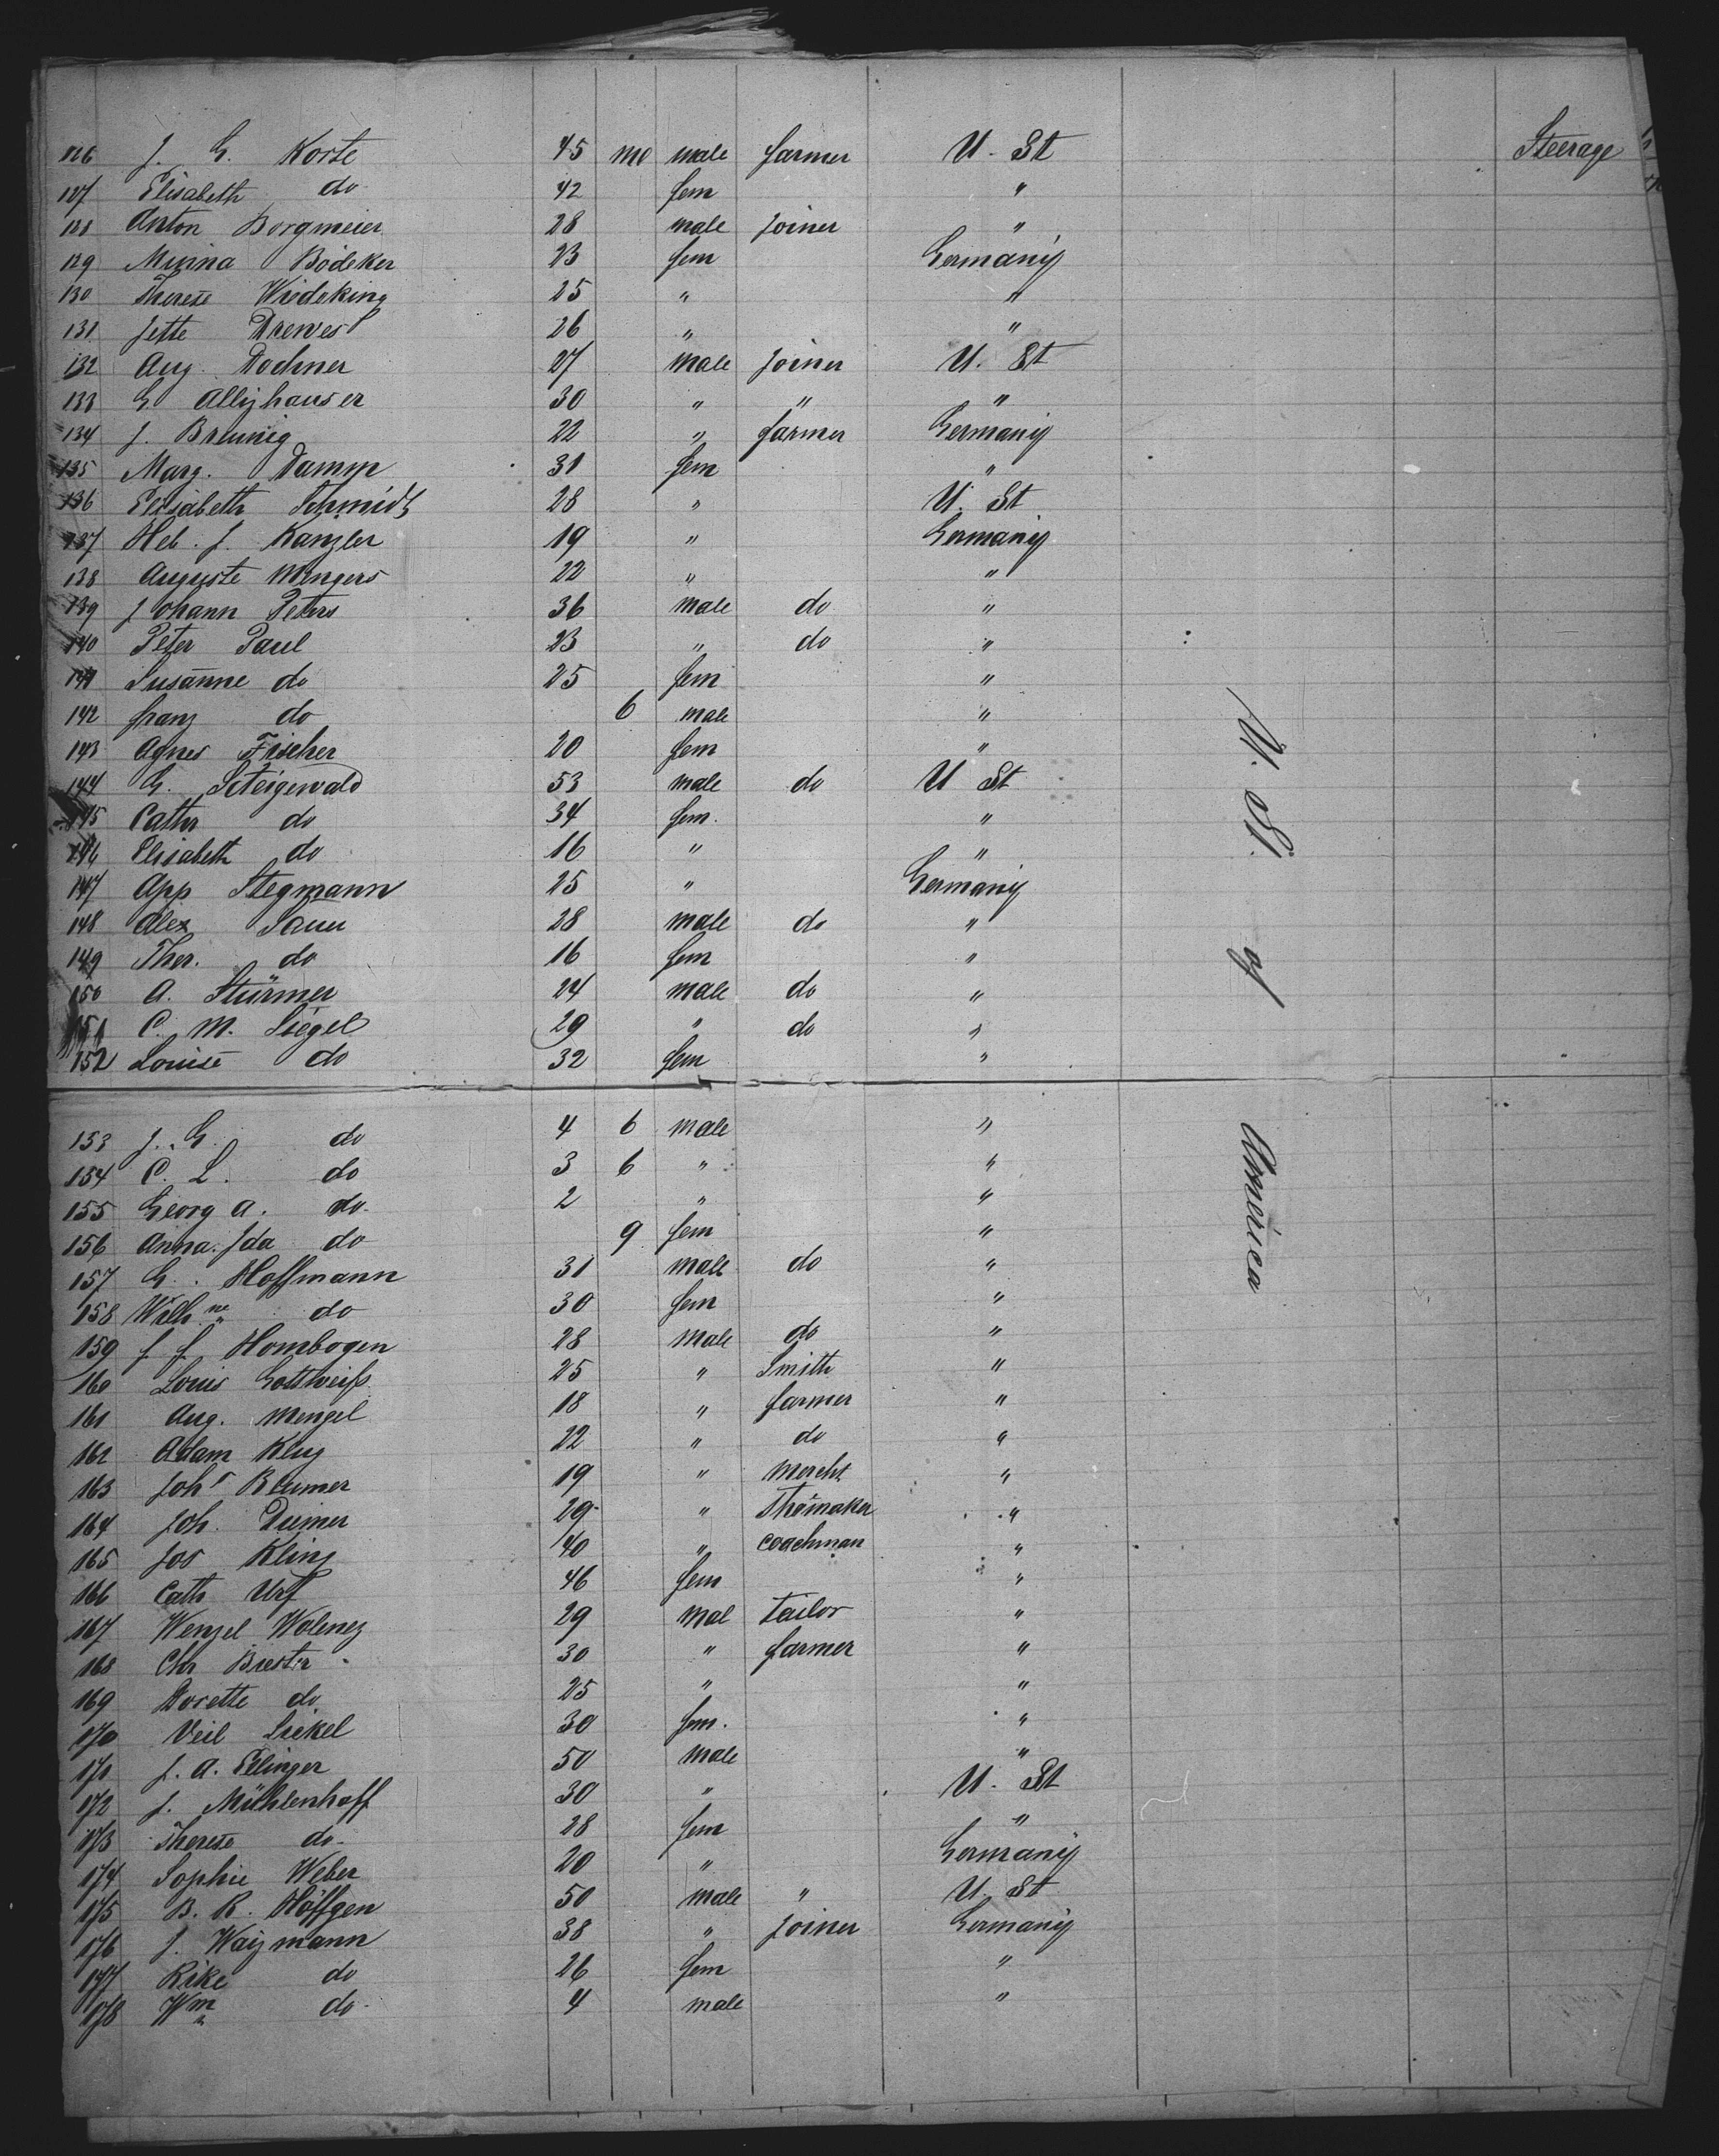 126 J. G. Korte 45 mo male farmer U. St Steerage
127 Elisabeth do 42 fem "
128 Anton Borgmeier 28 male joiner "
129 Minna Bödeker 23 fem Germany
130 Therese Wiedeking 25 " "
131 Jette Drewes 26 " "
132 Aug. Dochner 27 male joiner U. St
133 G Allyhauser 30 " " "
134 J. Breunig 22 " farmer Germany
135 Marg. Damm 31 fem "
136 Elisabeth Schmidt 28 " U. St
137 Heb. J. Kanzler 19 " Germany
138 Auguste Mengers 22 " "
139 Johann Peters 36 male do "
140 Peter Paul 23 " do "
141 Susanne do 25 fem "
142 Franz do 6 male "
143 Agnes Fischer 20 fem "
144 G. Steigerwald 53 male do U St
145 Cath do 34 fem. "
146 Elisabeth do 16 " "
147 App Stegmann 25 " Germany
148 Alex Sauer 28 male do "
149 Ther. do 16 fem "
150 A. Stürmer 24 male do "
151 C. M. Siegel 29 " do "
152 Louise do 32 fem "
153 J. G. do 4 6 male "
154 C. L. do 3 6 " "
155 Georg A. do. 2 " "
156 Anna. Ida do 9 fem "
157 G. Hoffmann 31 male do "
158 Wilh.ne do 30 fem "
159 J J Hornbogen 28 male do "
160 Louis Gottweiß 25 " Smith "
161 Aug. Mengel 18 " farmer "
162 Adam Klug 22 " do "
163 Joh. Blumer 19 " mercht "
164 Joh. Diemer 29 " Shomaker "
165 Jos Kling 40 " coachman "
166 Cath Urf 46 fem "
167 Wenzel Wolenez 29 mal tailor "
168 Chr Biester 30 " farmer "
169 Dorette do 25 " "
170 Veil Sickel 30 fem. "
171 J. A. Ellinger 50 male "
172 J. Mühlenhoff 30 " U. St
173 Therese do. 28 fem "
174 Sophie Weber 20 " Germany
175 B. R. Höffgen 50 male " U. St
176 J. Waizmann 38 " joiner Germany
177 Rike do 26 fem "
178 Wm do. 4 male "
U. St. of America